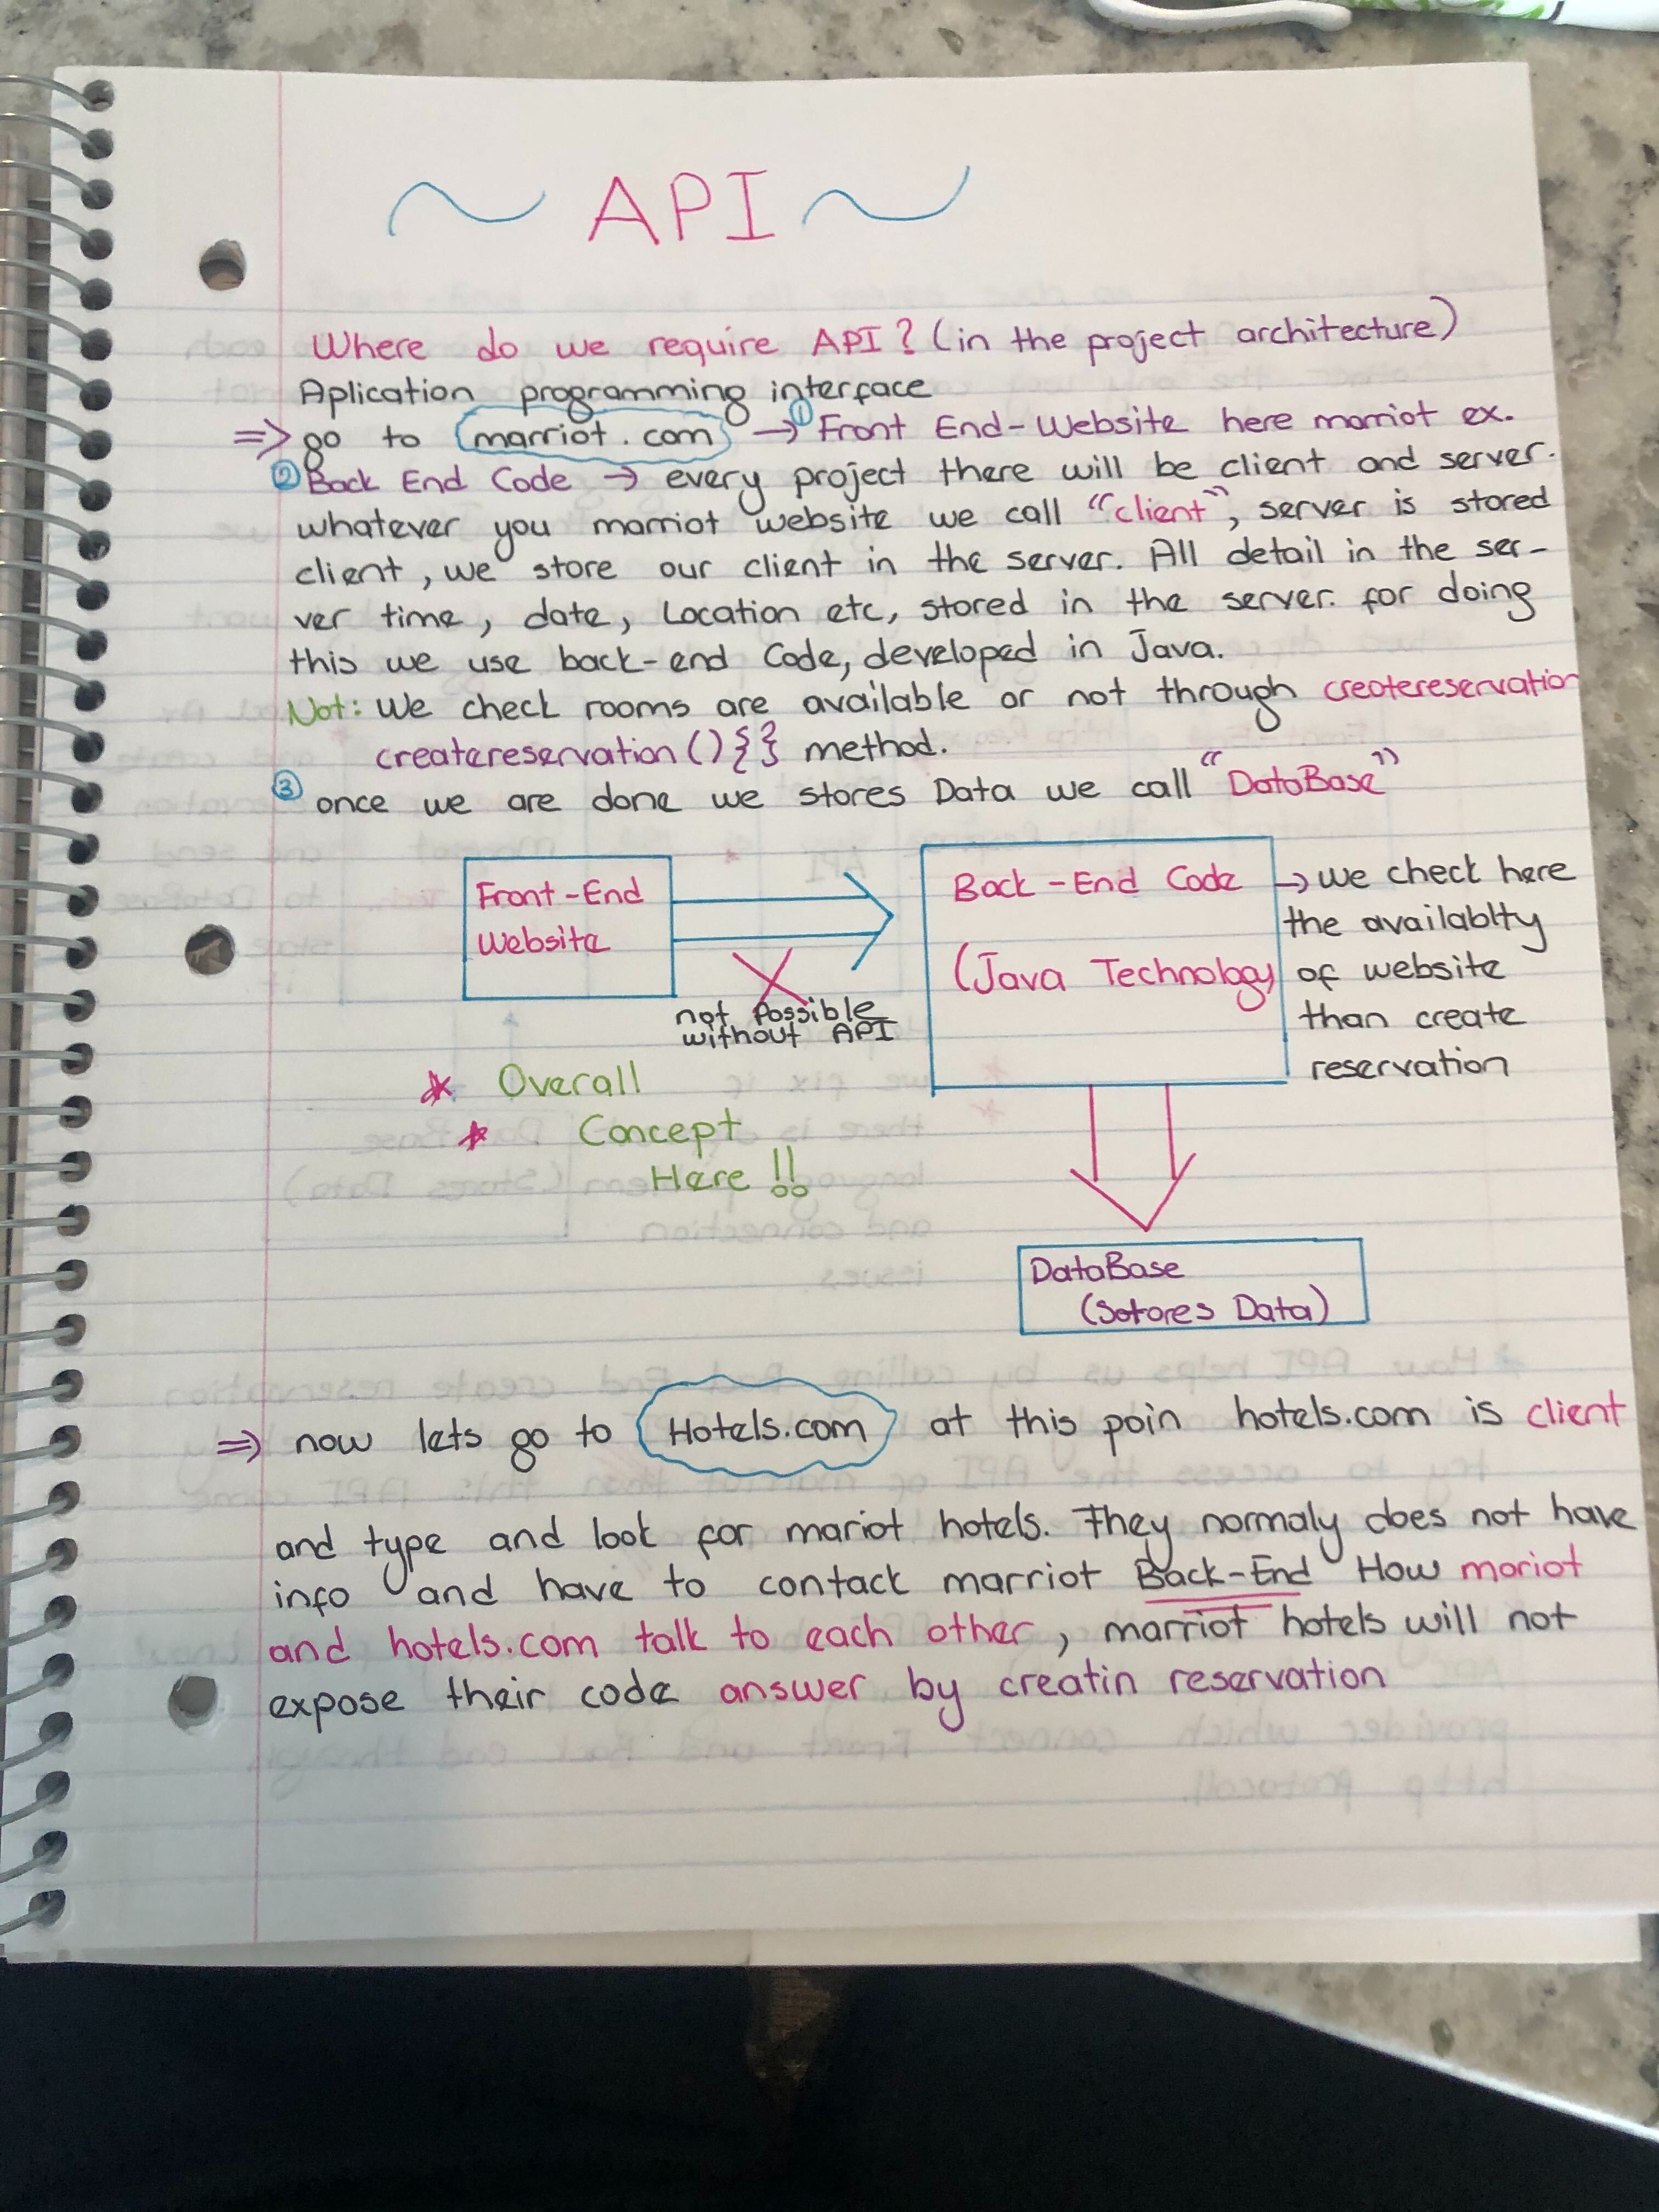 ~ API ~
Where do we require API? (in the project architecture)
Aplication programming interface
=> go to marriot.com → ① Front End-Website here marriot ex.
② Back End Code → every project there will be client and server.
whatever you marriot website we call "client", server is stored
client, we store our client in the server. All detail in the ser-
ver time, date, Location etc, stored in the server. for doing
this we use back-end Code, developed in Java.
Not: We check rooms are available or not through createreservation
createreservation(){} method.
③ once we are done we stores Data we call "DataBase"
Front-End
Website
not Possible
without API
Back-End Code
(Java Technology)
→ we check here
the availablty
of website
than create
reservation
* Overall
* Concept
Here !!
DataBase
(Sotores Data)
=> now lets go to Hotels.com at this poin hotels.com is client
and type and look for mariot hotels. They normaly does not have
info and have to contack marriot Back-End How mariot
and hotels.com talk to each other, marriot hotels will not
expose their code answer by creatin reservation